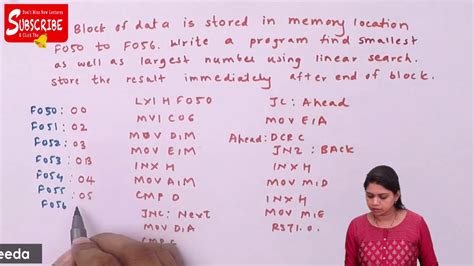 Don't Miss New Lectures
SUBSCRIBE
& Click The
Block of data is stored in memory location
F050 to F056. Write a program find smallest
as well as largest number using linear search.
store the result immediately after end of block.
F050: 00
F051: 02
F052: 03
F053: 0B
F054: 04
F055: 05
F056
LXI H F050
MVI C06
MOV D,M
MOV E,M
INX H
MOV A,M
CMP D
JNC: Next
MOV D,A
CMP E
JC: Ahead
MOV E,A
Ahead: DCR C
JNZ: BAck
INX H
MOV M,D
INX H
MOV M,E
RST1.0.
eeda